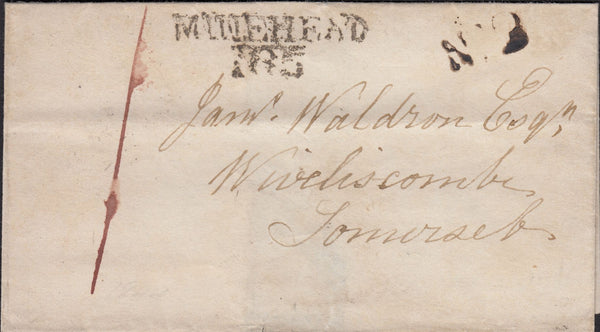 MINEHEAD
Waldron Esqr,
Wiveliscombe
Somerset.